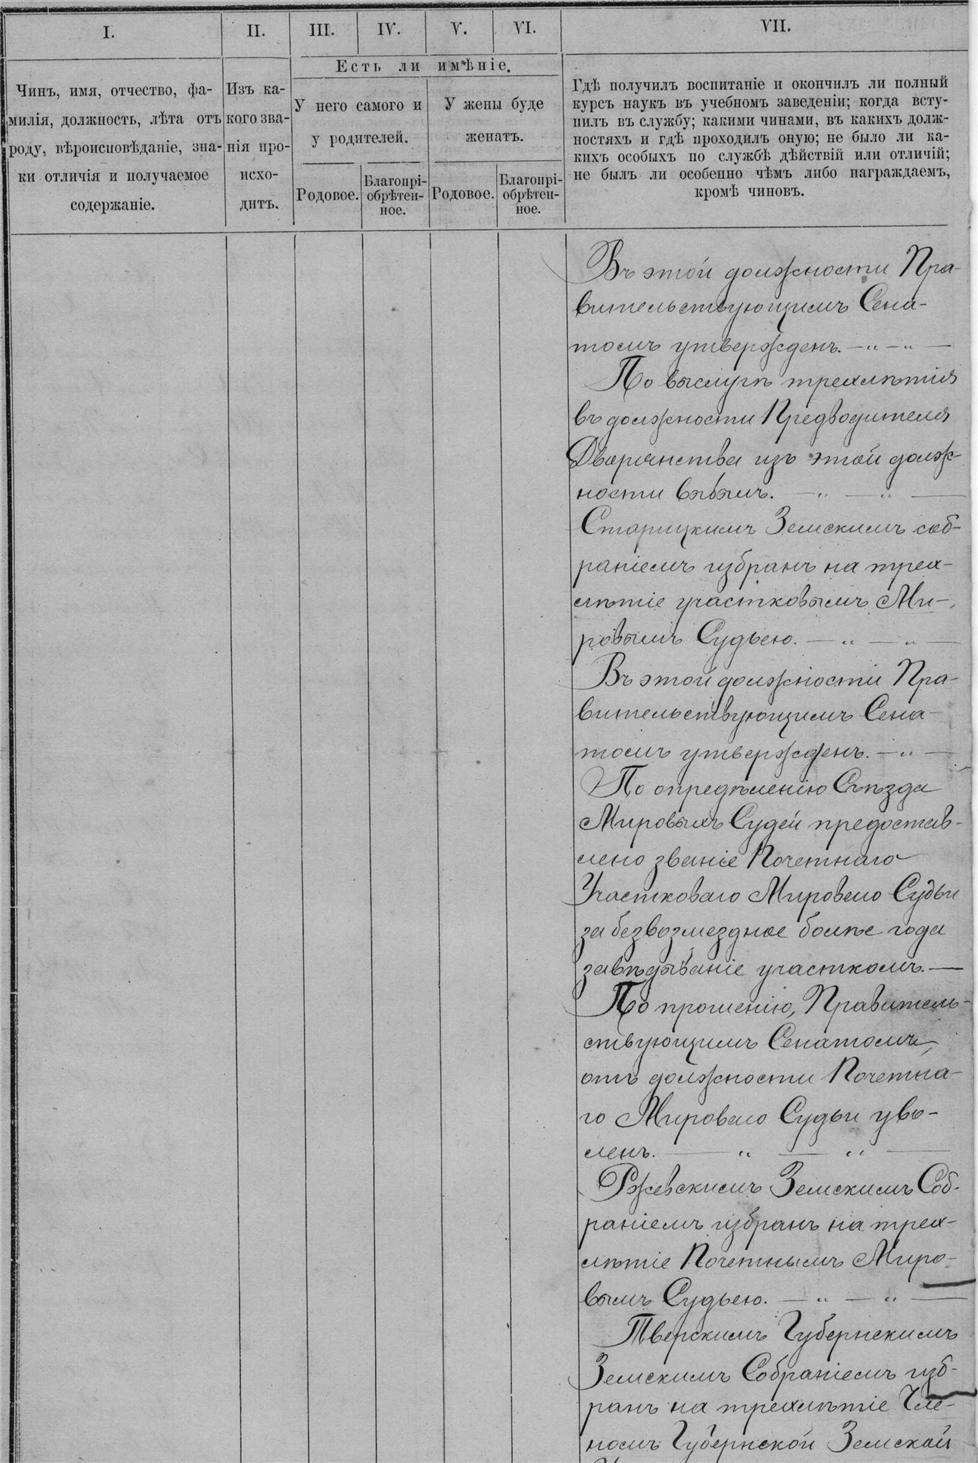 I. II. III. IV. V. VI. VII.
Есть ли имѣніе.
Чинъ, имя, отчество, фа-
милія, должность, лѣта отъ
роду, вѣроисповѣданіе, зна-
ки отличія и получаемое
содержаніе.
Изъ ка-
кого зва-
нія про-
исхо-
дитъ.
У него самого и
у родителей.
У жены буде
женатъ.
Родовое.
Благопрі-
обрѣтен-
ное.
Родовое.
Благопрі-
обрѣтен-
ное.
Гдѣ получилъ воспитаніе и окончилъ ли полный
курсъ наукъ въ учебномъ заведеніи; когда всту-
пилъ въ службу; какими чинами, въ какихъ долж-
ностяхъ и гдѣ проходилъ оную; не было ли ка-
кихъ особыхъ по службѣ дѣйствій или отличій;
не былъ ли особенно чѣмъ либо награждаемъ,
кромѣ чиновъ.
Въ этой должности Пра-
вительствующимъ Сена-
томъ утвержденъ. — " — " —
По выслугѣ трехлѣтія
въ должности Предводителя
Дворянства изъ этой долж-
ности выбылъ. — " — " —
Старицкимъ Земскимъ соб-
раніемъ избранъ на трех-
лѣтіе участковымъ Ми-
ровымъ Судьею. — " — " —
Въ этой должности Пра-
вительствующимъ Сена-
томъ утвержденъ. — " —
По опредѣленію Съѣзда
Мировыхъ Судей предостав-
лено званіе Почетнаго
Участковаго Мироваго Судьи
за безвозмездное болѣе года
завѣдываніе участкомъ. —
По прошенію, Правитель-
ствующимъ Сенатомъ,
отъ должности Почетна-
го Мироваго Судьи уво-
ленъ. — " — " —
Ржевскимъ Земскимъ Соб-
раніемъ избранъ на трех-
лѣтіе Почетнымъ Миро-
вымъ Судьею. — " — " —
Тверскимъ Губернскимъ
Земскимъ Собраніемъ изб-
ранъ на трехлѣтіе Чле-
номъ Губернской Земской